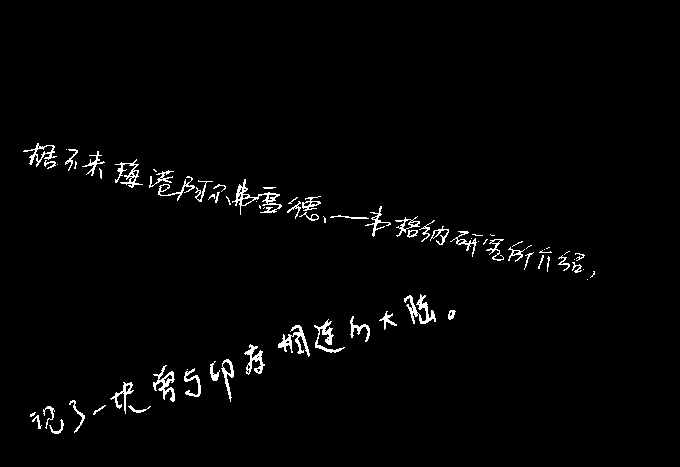 据不来梅港阿尔弗雷德、一韦格纳研究所介绍，
现了一块曾与印度相连的大陆。